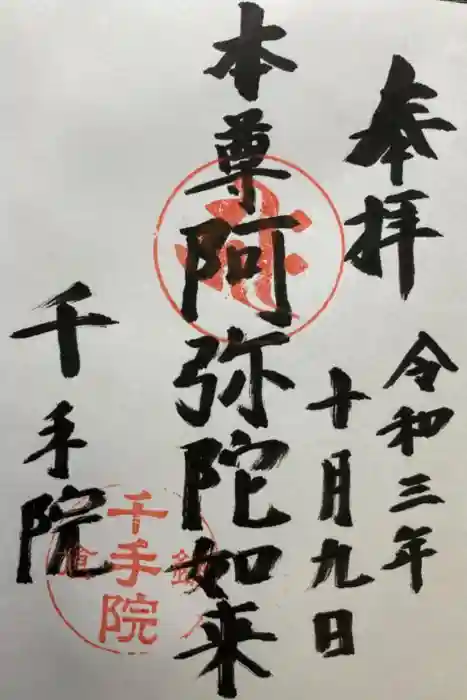 奉拝
令和三年
十月九日
本尊阿弥陀如来
千手院
千手院